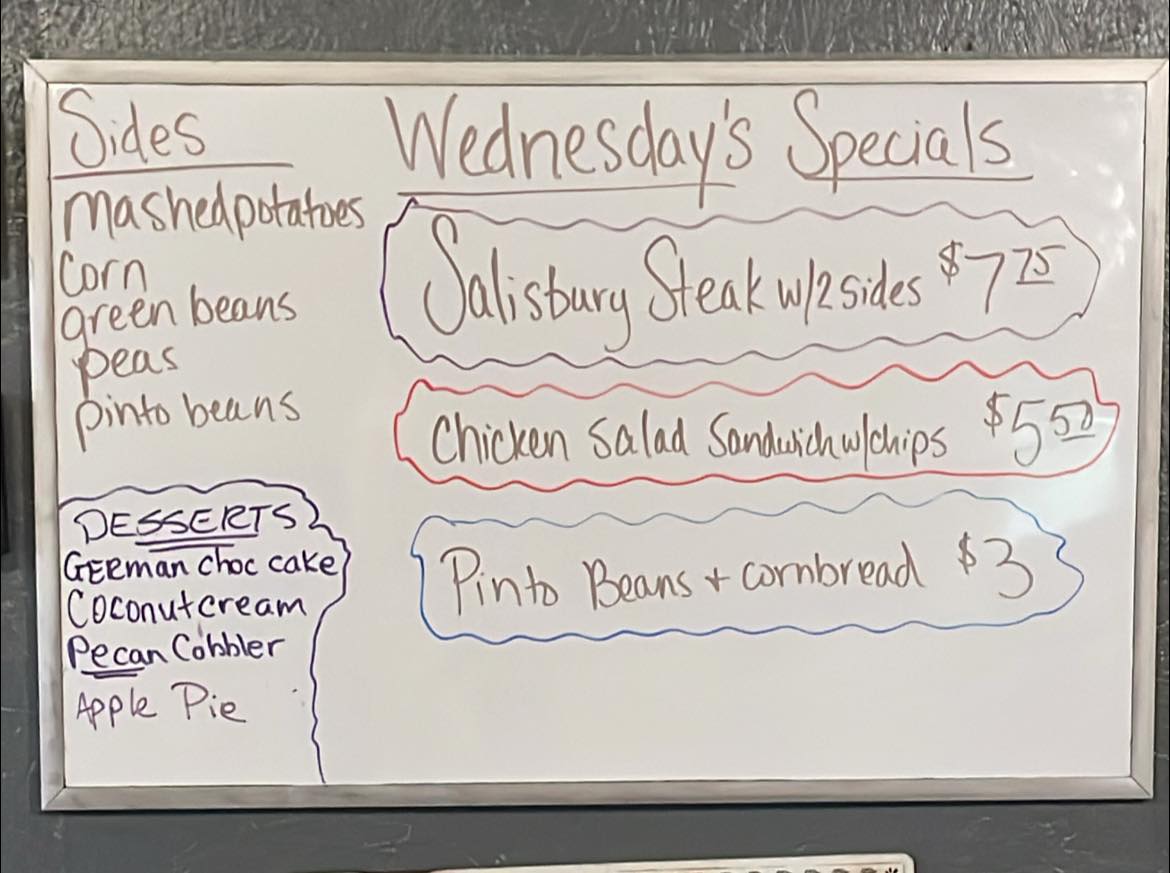 Sides
mashed potatoes
Corn
green beans
peas
pinto beans
DESSERTS
GERman choc cake
Coconut cream
Pecan Cobbler
Apple Pie
Wednesday's Specials
Salisbury Steak w/2 sides $7 75
Chicken Salad Sandwich w/chips $5 50
Pinto Beans + cornbread $3